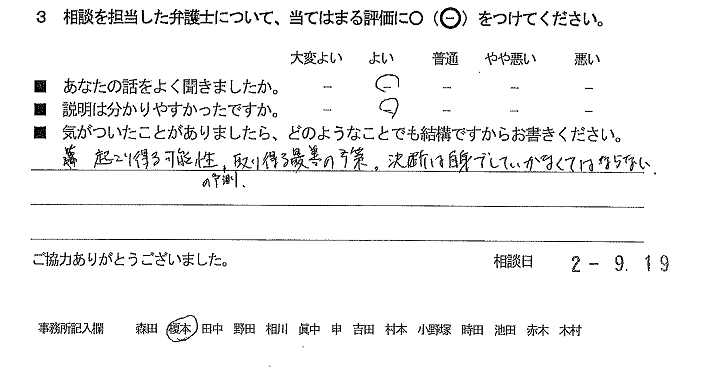 3 相談を担当した弁護士について、当てはまる評価に○(㊀)をつけてください。
大変よい よい 普通 やや悪い 悪い
■ あなたの話をよく聞きましたか。 － － － － －
■ 説明は分かりやすかったですか。 － － － － －
■ 気がついたことがありましたら、どのようなことでも結構ですからお書きください。
起こり得る可能性、取り得る最善の予策。決断は自身でしていかなくてはならない.
の予測.
ご協力ありがとうございました。 相談日 2-9.19
事務所記入欄 森田 榎本 田中 野田 相川 眞中 申 吉田 村本 小野塚 時田 池田 赤木 木村